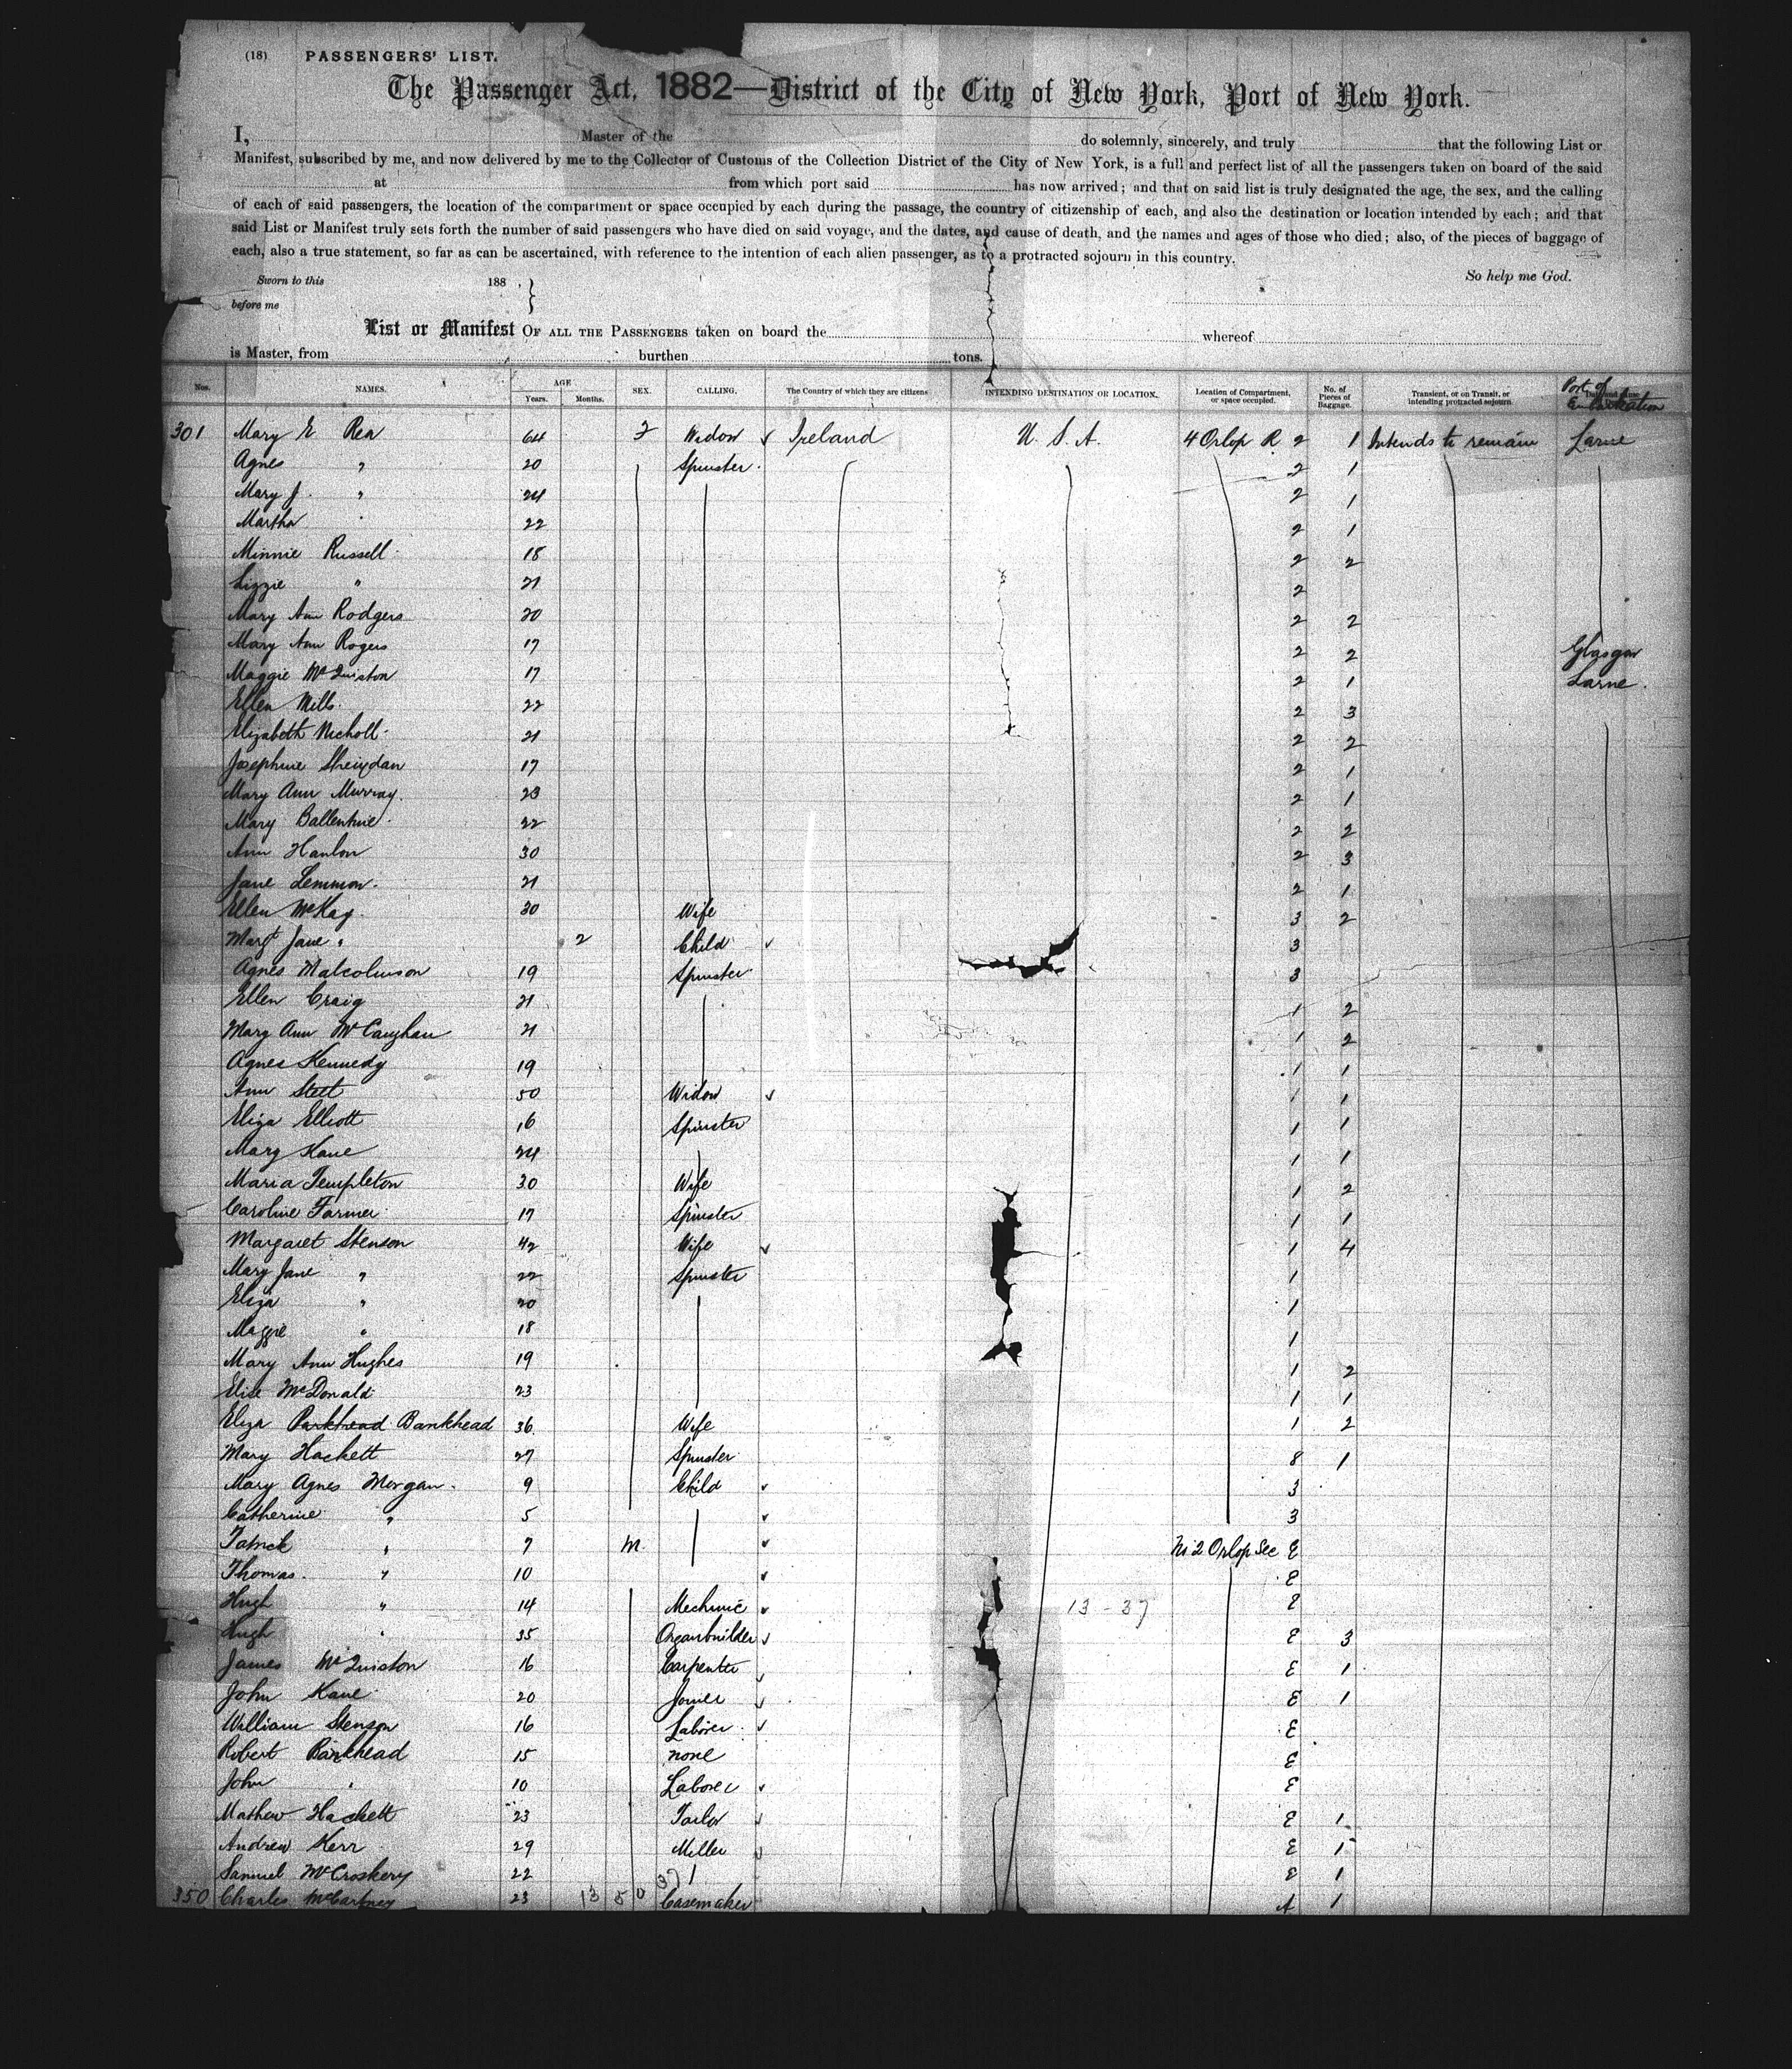 (18) PASSENGERS' LIST.
The Passenger Act, 1882—District of the City of New York, Port of New York.
I, Master of the do solemnly, sincerely, and truly that the following List or
Manifest, subscribed by me, and now delivered by me to the Collector of Customs of the Collection District of the City of New York, is a full and perfect list of all the passengers taken on board of the said
at from which port said has now arrived; and that on said list is truly designated the age, the sex, and the calling
of each of said passengers, the location of the compartment or space occupied by each during the passage, the country of citizenship of each, and also the destination or location intended by each; and that
said List or Manifest truly sets forth the number of said passengers who have died on said voyage, and the dates, and cause of death, and the names and ages of those who died; also, of the pieces of baggage of
each, also a true statement, so far as can be ascertained, with reference to the intention of each alien passenger, as to a protracted sojourn in this country.
Sworn to this 188 , So help me God.
before me
List or Manifest OF ALL THE PASSENGERS taken on board the whereof
is Master, from burthen tons.
Nos. NAMES. AGE Years. Months. SEX. CALLING. The Country of which they are citizens INTENDING DESTINATION OR LOCATION. Location of Compartment, or space occupied. No. of Pieces of Baggage. Transient, or on Transit, or intending protracted sojourn Port of Embarkation
301 Mary E Rea 64 F Widow Ireland U. S. A. 4 Orlop R 2 1 Intends to remain Larne
Agnes " 20 Spinster 2 1
Mary J. " 24 2 1
Martha " 22 2 1
Minnie Russell 18 2 2
Lizzie " 21 2
Mary Ann Rodgers 20 2 2
Mary Ann Rogers 17 2 2 Glasgow
Maggie McQuiston 17 2 1 Larne.
Ellen Mills 22 2 3
Elizabeth Nicholl 21 2 2
Josephine Sheridan 17 2 1
Mary Ann Murray. 23 2 1
Mary Ballentine 22 2 2
Ann Hanlon 30 2 3
Jane Lemmon 21 2 1
Ellen McKay 30 Wife 3 2
Margt Jane " 2 Child 3
Agnes Malcolmson 19 Spinster 3
Ellen Craig 21 1 2
Mary Ann McCaughan 21 1 2
Agnes Kennedy 19 1 1
Ann Stett 50 Widow 1 1
Eliza Elliott 16 Spinster 1 1
Mary Kane 24 1 1
Maria Templeton 30 Wife 1 2
Caroline Farmer 17 Spinster 1 1
Margaret Stenson 42 Wife 1 4
Mary Jane " 22 Spinster 1
Eliza " 20 1
Maggie " 18 1
Mary Ann Hughes 19 1 2
Elise McDonald 23 1 1
Eliza Parkhead Bankhead 36 Wife 1 2
Mary Hackett 27 Spinster 8 1
Mary Agnes Morgan 9 Child 3
Catherine " 5 3
Patrick " 7 M. No 2 Orlop Sec E
Thomas " 10 E
Hugh " 14 Mechanic 13 - 37 E
Hugh " 35 Organbuilder E 3
James McQuiston 16 Carpenter E 1
John Kane 20 Joiner E 1
William Stenson 16 Laborer E
Robert Bankhead 15 none E
John " 10 Laborer E
Mathew Hackett 23 Tailor E 1
Andrew Kerr 29 Miller E 1
Samuel McCroskery 22 37 E 1
350 Charles McCartney 23 13 50 Casemaker A 1